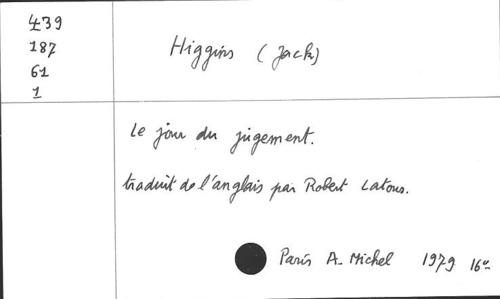 439
187
61
1
Higgins (Jack)
Le jour du jugement.
traduit de l'anglais par Robert Latour.
Paris A. Michel 1979 16°